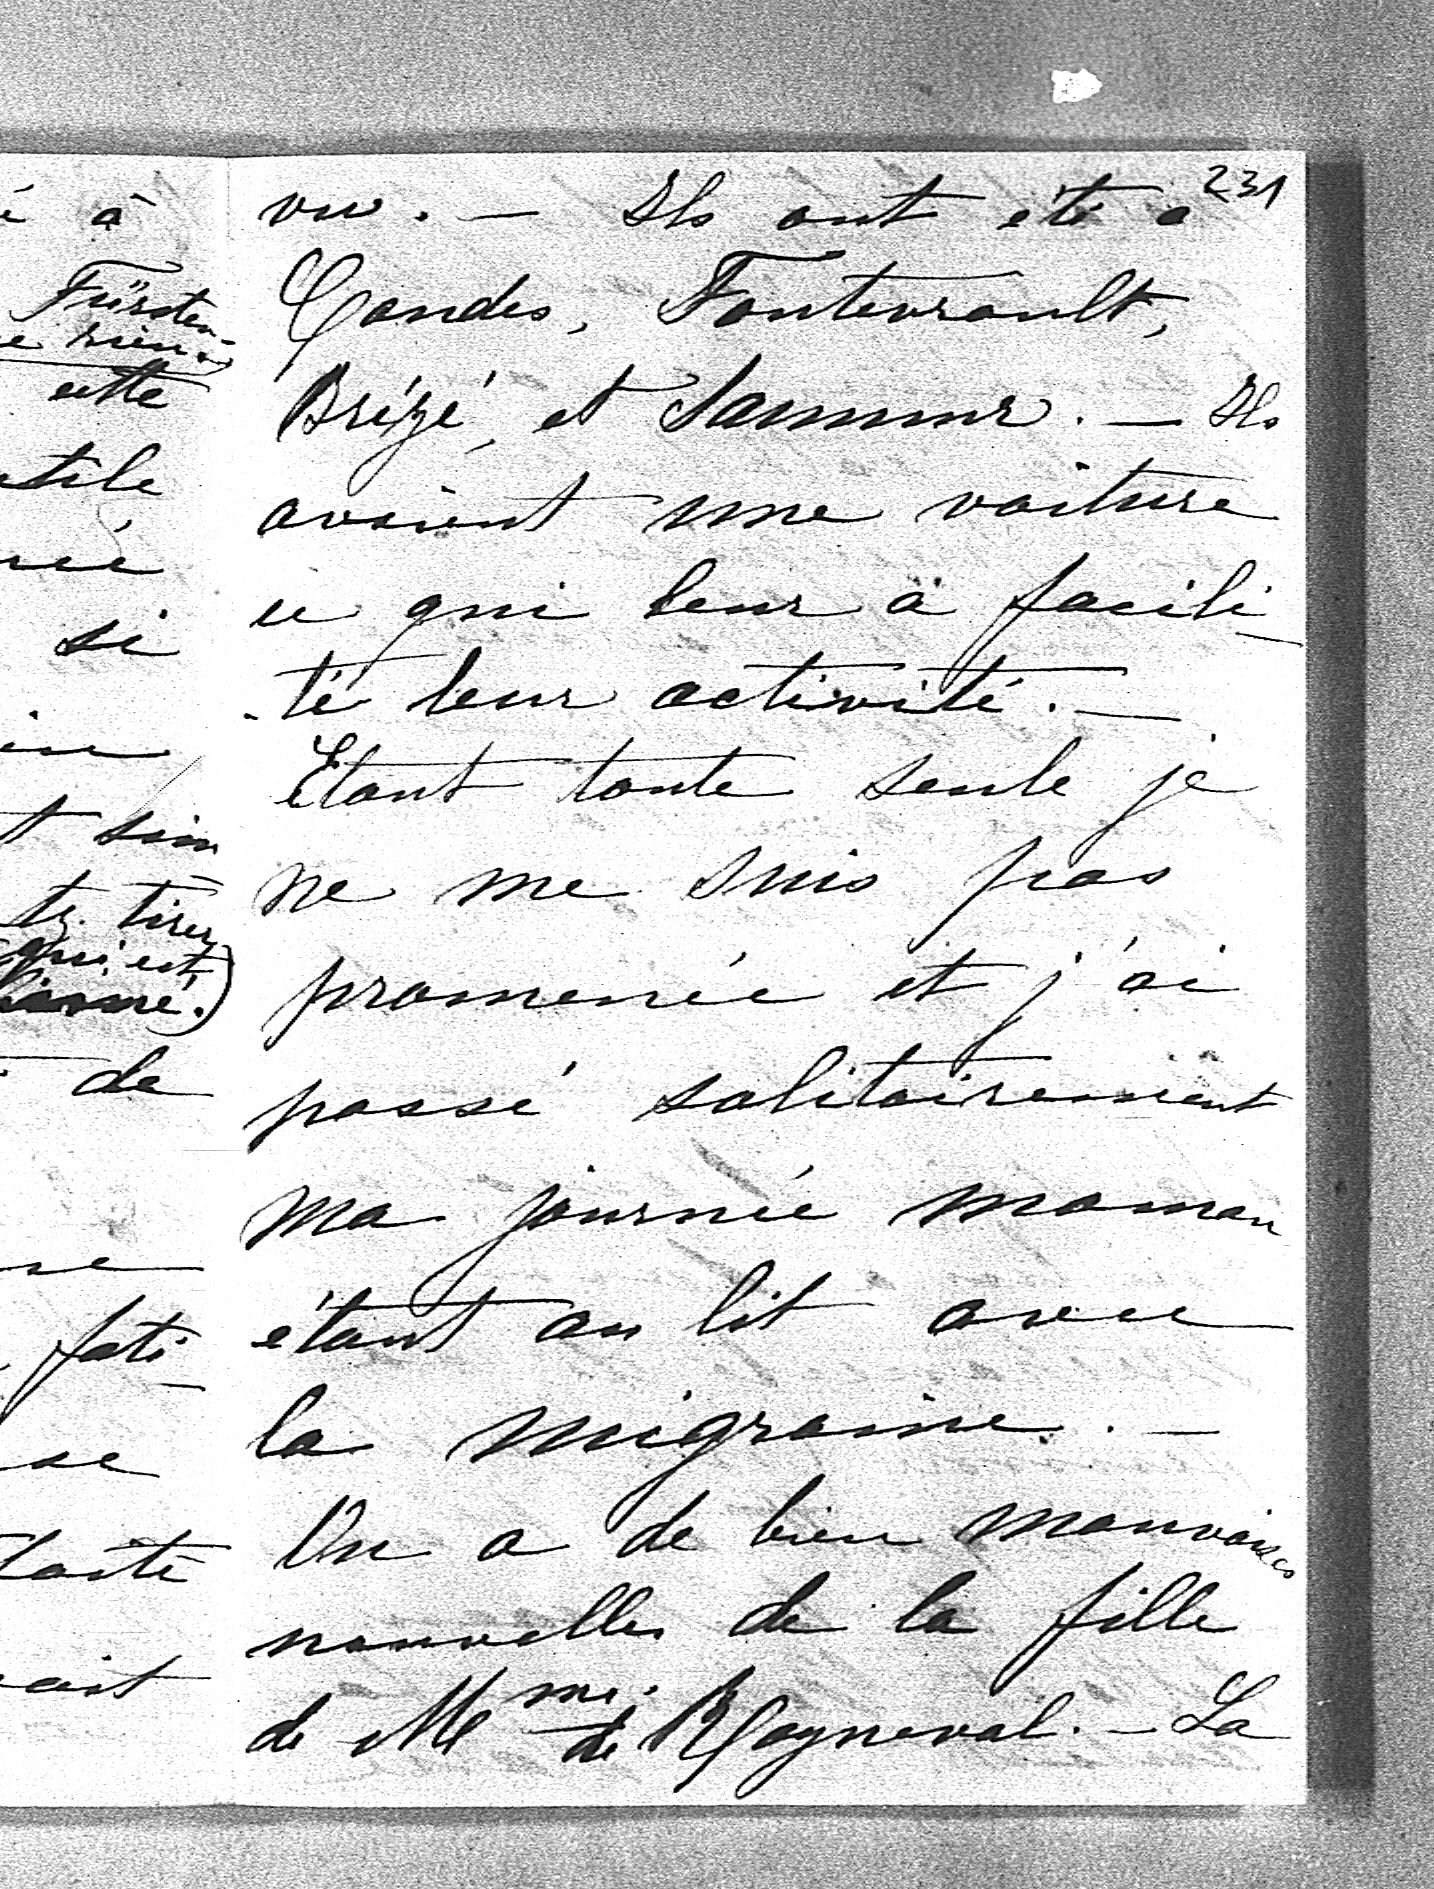 à
Fürsten-
e rien.
cette
utile
si
t sim
tz. tirer
qui est
de
fati-
231
vu. — Ils ont été a
Candes, Fontevrault,
Brézé, et Saumur. — Ils
avaient une voiture
ce qui leur à facili-
-té leur activité. —
Etant toute seule je
ne me suis pas
promenée et j'ai
passé solitairement
ma journée maman
étant au lit avec
la migraine. —
On a de bien mauvaises
nouvelles de la fille
de Mme. de Rayneval. — La